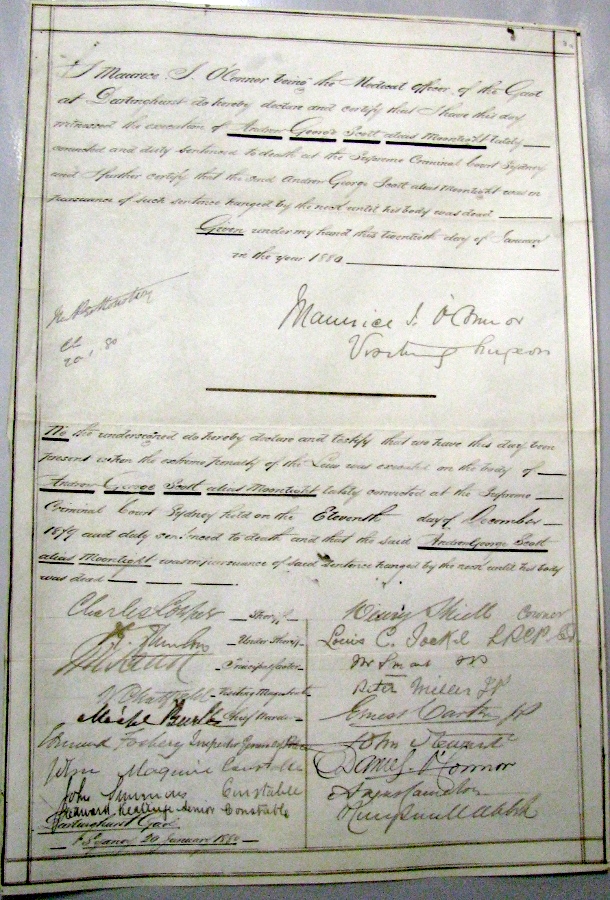 I Maurice J. O'Connor being the Medical officer of the Gaol
at Darlinghurst do hereby declare and certify that I have this day
witnessed the execution of Andrew George Scott alias Moonlight lately
convicted and duly sentenced to death at the Supreme Criminal Court Sydney
and I further certify that the said Andrew George Scott alias Moonlight was in
pursuance of such sentence hanged by the neck until his body was dead
Given under my hand this twentieth day of January
in the year 1880
Maurice J. O'Connor
Visiting Surgeon
20.1.80
We the undersigned do hereby declare and testify that we have this day been
present when the extreme penalty of the Law was executed on the body of
Andrew George Scott alias Moonlight lately convicted at the Supreme
Criminal Court Sydney held on the Eleventh day of December
1879 and duly sentenced to death and that the said Andrew George Scott
alias Moonlight was in pursuance of said sentence hanged by the neck until his body
was dead
Charles Cowper Sheriff
Under Sheriff
Principal Gaoler
Visiting Magistrate
Michl Burke Chief Warder
Edmund Fosbery Inspector General Police
John Maguire Constable
John Simmons Constable
Edward Keating Senior Constable
Darlinghurst Gaol
Sydney 20 January 1880
Henry Shiell Coroner
Louis C. Jockel LRCP Ed
JP
Peter Miller JP
Ernest Carter JP
John Stewart
O'Connor